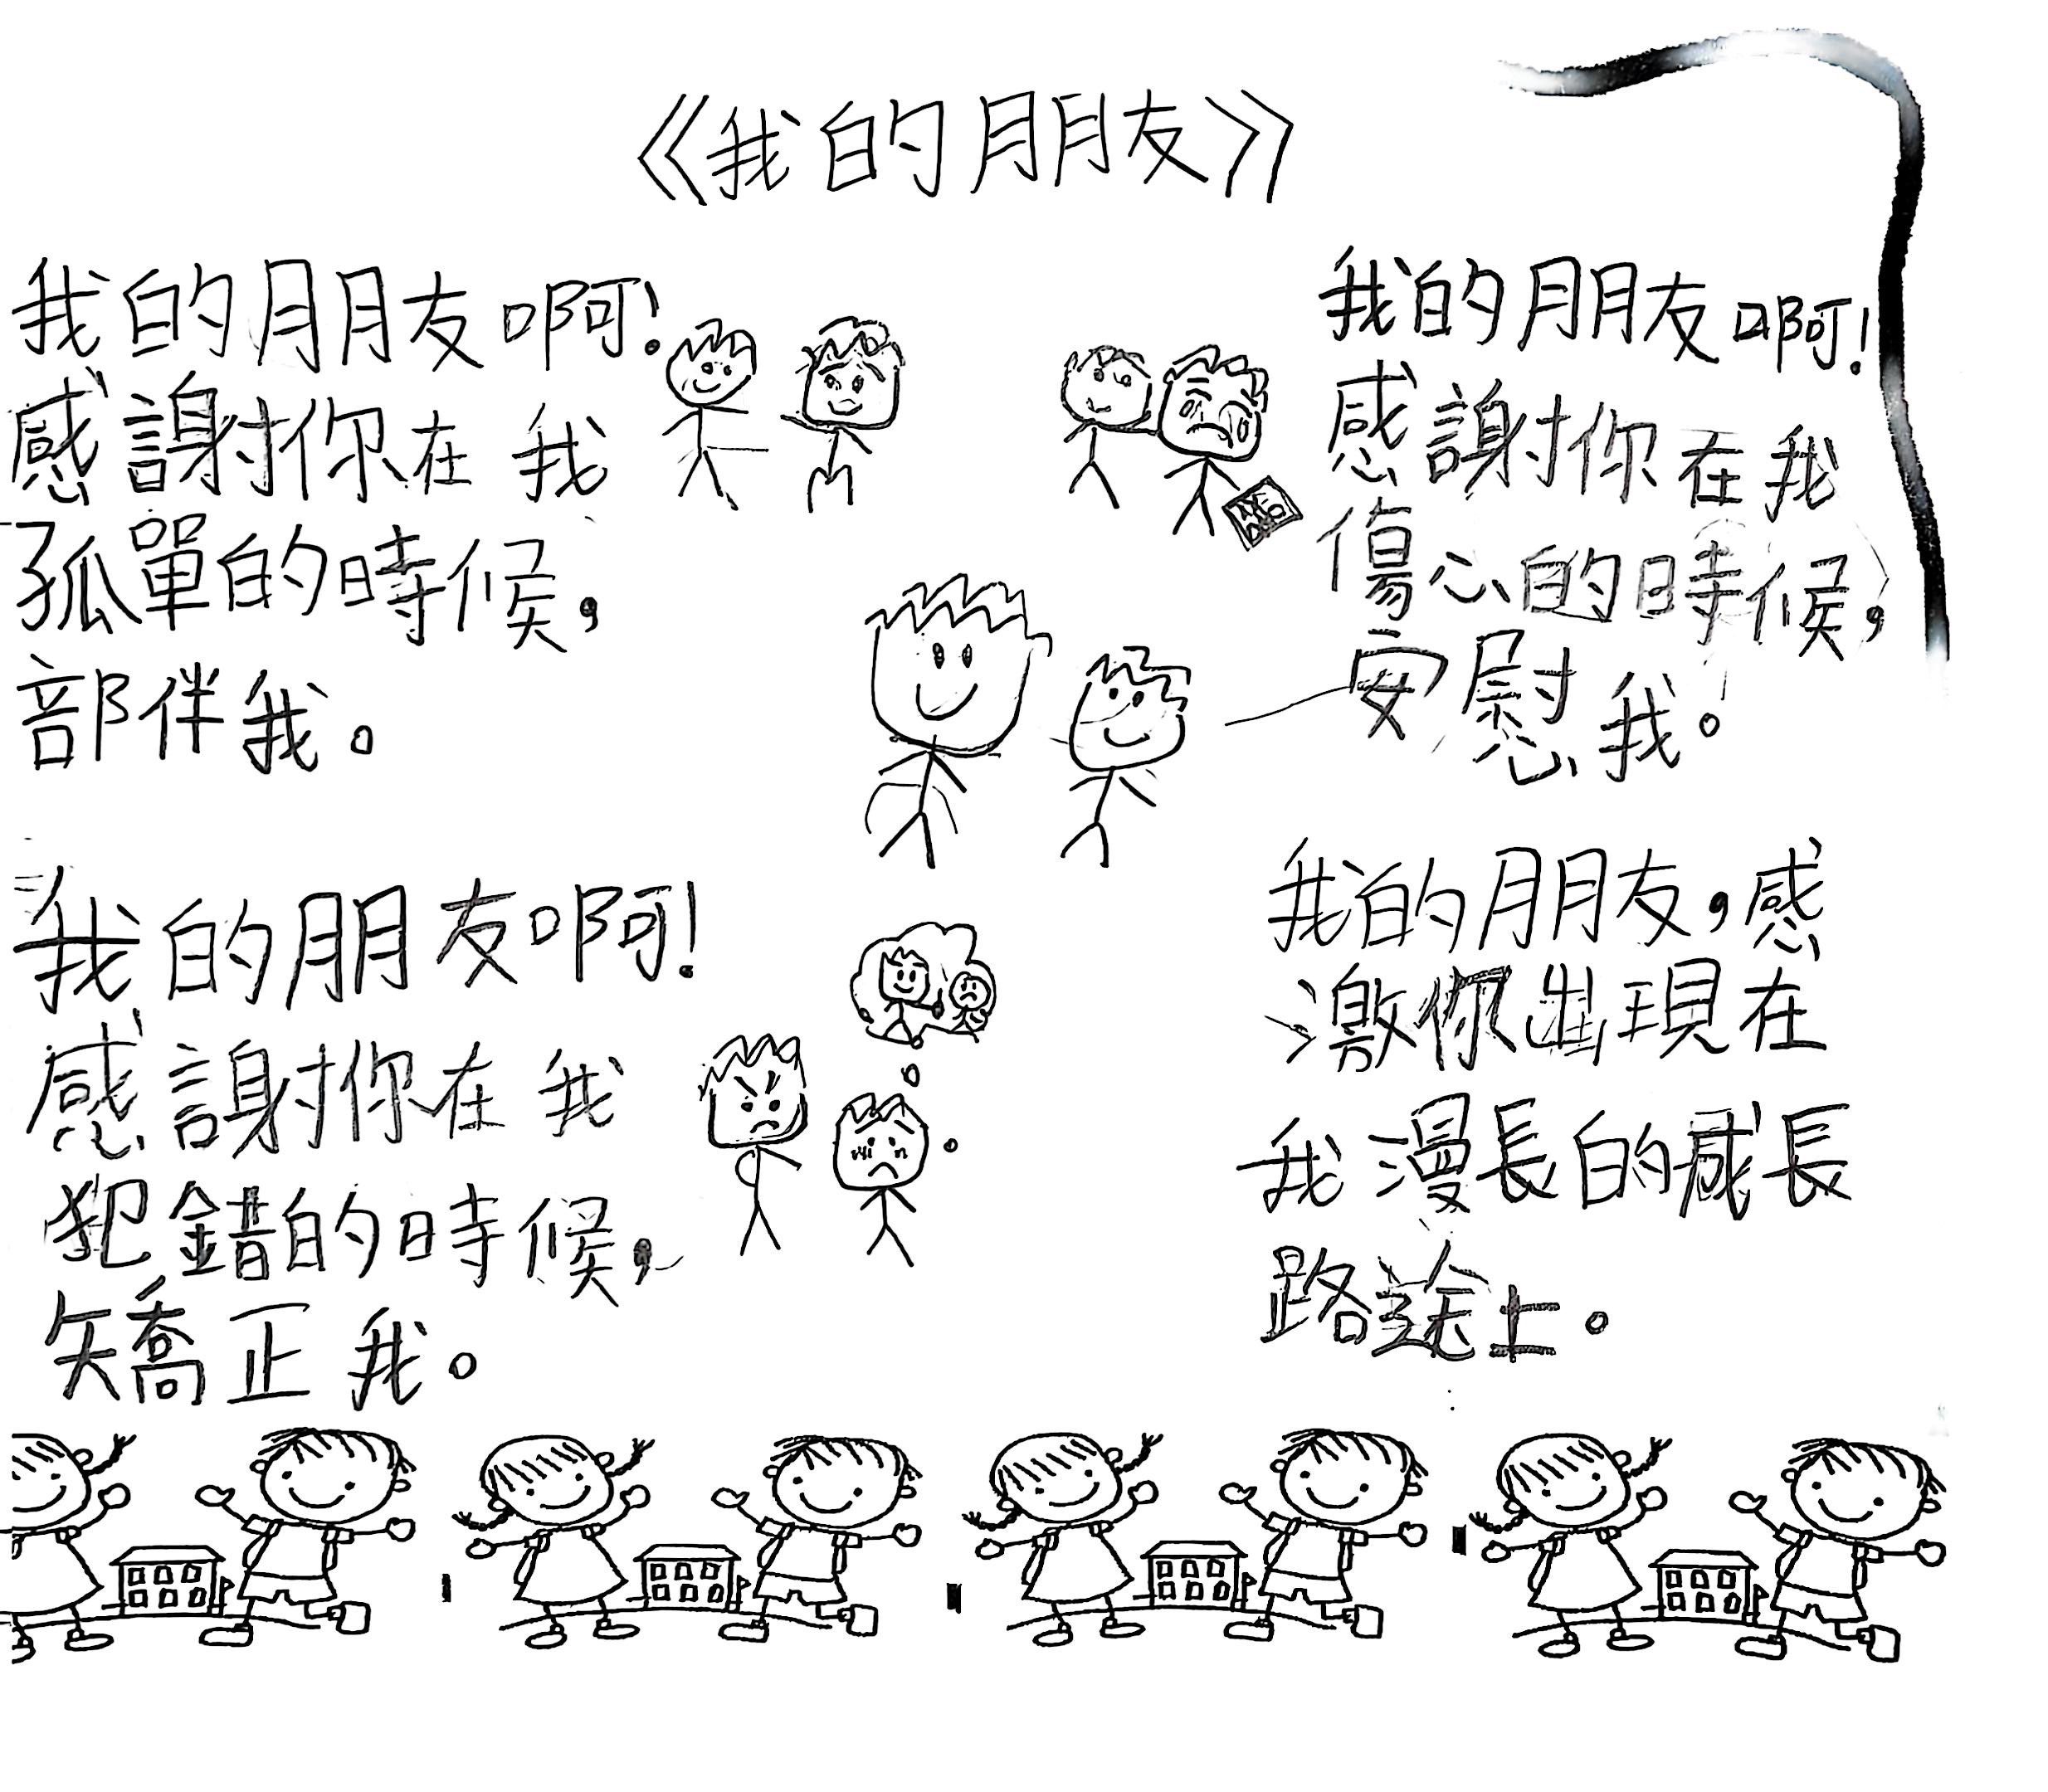 《我的朋友》
我的朋友啊!
感謝你在我
孤單的時候,
部伴我。
我的朋友啊!
感謝你在我
傷心的時候,
安慰我。
我的朋友啊!
感謝你在我
犯錯的時候,
矯正我。
我的朋友,感
激你出現在
我漫長的成長
路途上。